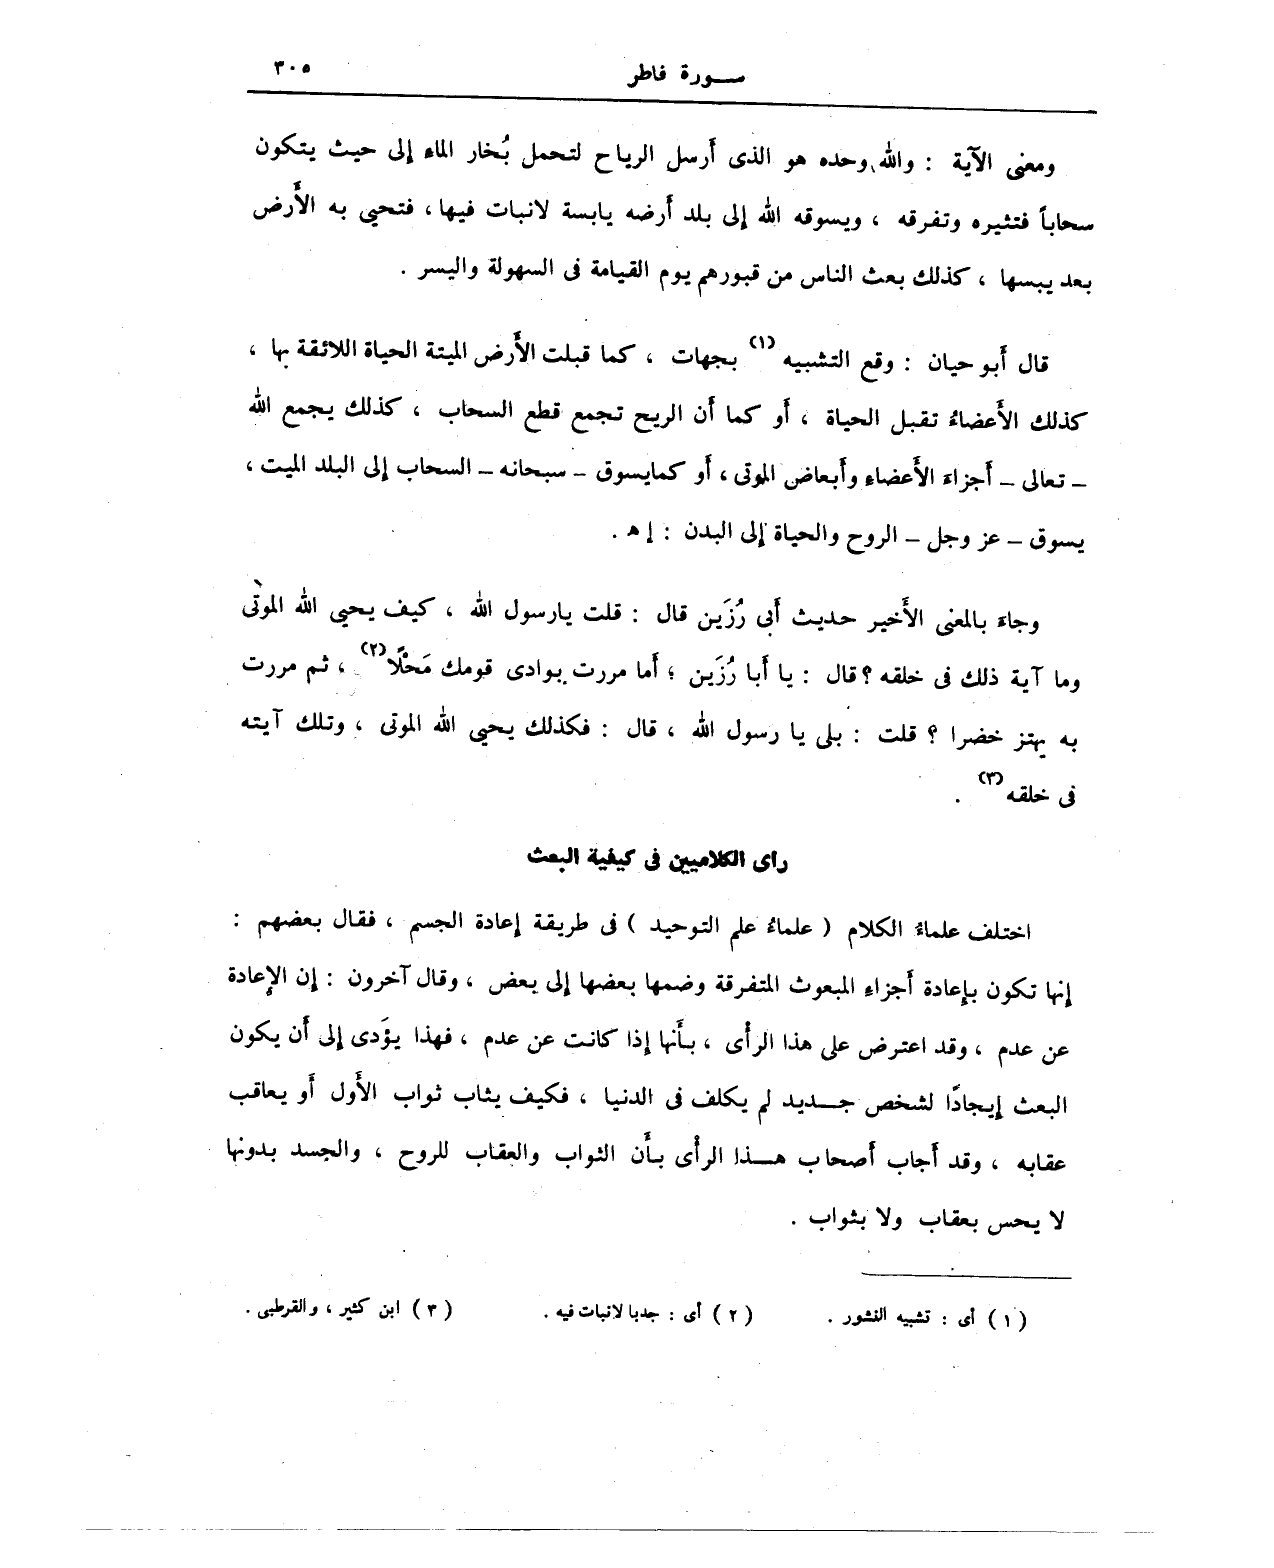 سورة فاطر ٣٠٥
ومعنى الآية : والله وحده هو الذى أرسل الرياح لتحمل بُخار الماء إلى حيث يتكون
سحاباً فتثيره وتفرقه ، ويسوقه الله إلى بلد أرضه يابسة لانبات فيها ، فتحيى به الأرض
بعد يبسها ، كذلك بعث الناس من قبورهم يوم القيامة فى السهولة واليسر .
قال أبو حيان : وقع التشبيه (١) بجهات ، كما قبلت الأرض الميتة الحياة اللائقة بها ،
كذلك الأعضاءُ تقبل الحياة ، أو كما أن الريح تجمع قطع السحاب ، كذلك يجمع الله
– تعالى – أجزاء الأعضاء وأبعاض الموتى ، أو كمايسوق – سبحانه – السحاب إلى البلد الميت ،
يسوق – عز وجل – الروح والحياة إلى البدن : إ ﻫ .
وجاء بالمعنى الأخير حديث أبى رُزَين قال : قلت يارسول الله ، كيف يحيى الله الموتى
وما آية ذلك فى خلقه ؟ قال : يا أبا رُزَين ؛ أما مررت بوادى قومك مَحْلًا (٢) ، ثم مررت
به يهتز خضرا ؟ قلت : بلى يا رسول الله ، قال : فكذلك يحيى الله الموتى ، وتلك آيته
فى خلقه (٣) .
رأى الكلاميين فى كيفية البعث
اختلف علماءُ الكلام ( علماءُ علم التوحيد ) فى طريقة إعادة الجسم ، فقال بعضهم :
إنها تكون بإعادة أجزاء المبعوث المتفرقة وضمها بعضها إلى بعض ، وقال آخرون : إن الإعادة
عن عدم ، وقد اعترض على هذا الرأى ، بأنها إذا كانت عن عدم ، فهذا يؤدى إلى أن يكون
البعث إيجادًا لشخص جـديد لم يكلف فى الدنيا ، فكيف يثاب ثواب الأول أو يعاقب
عقابه ، وقد أجاب أصحاب هـذا الرأى بأن الثواب والعقاب للروح ، والجسد بدونها
لا يحس بعقاب ولا بثواب .
( ١ ) أى : تشبيه النشور . ( ٢ ) أى : جدبا لانبات فيه . ( ٣ ) ابن كثير ، والقرطبى .